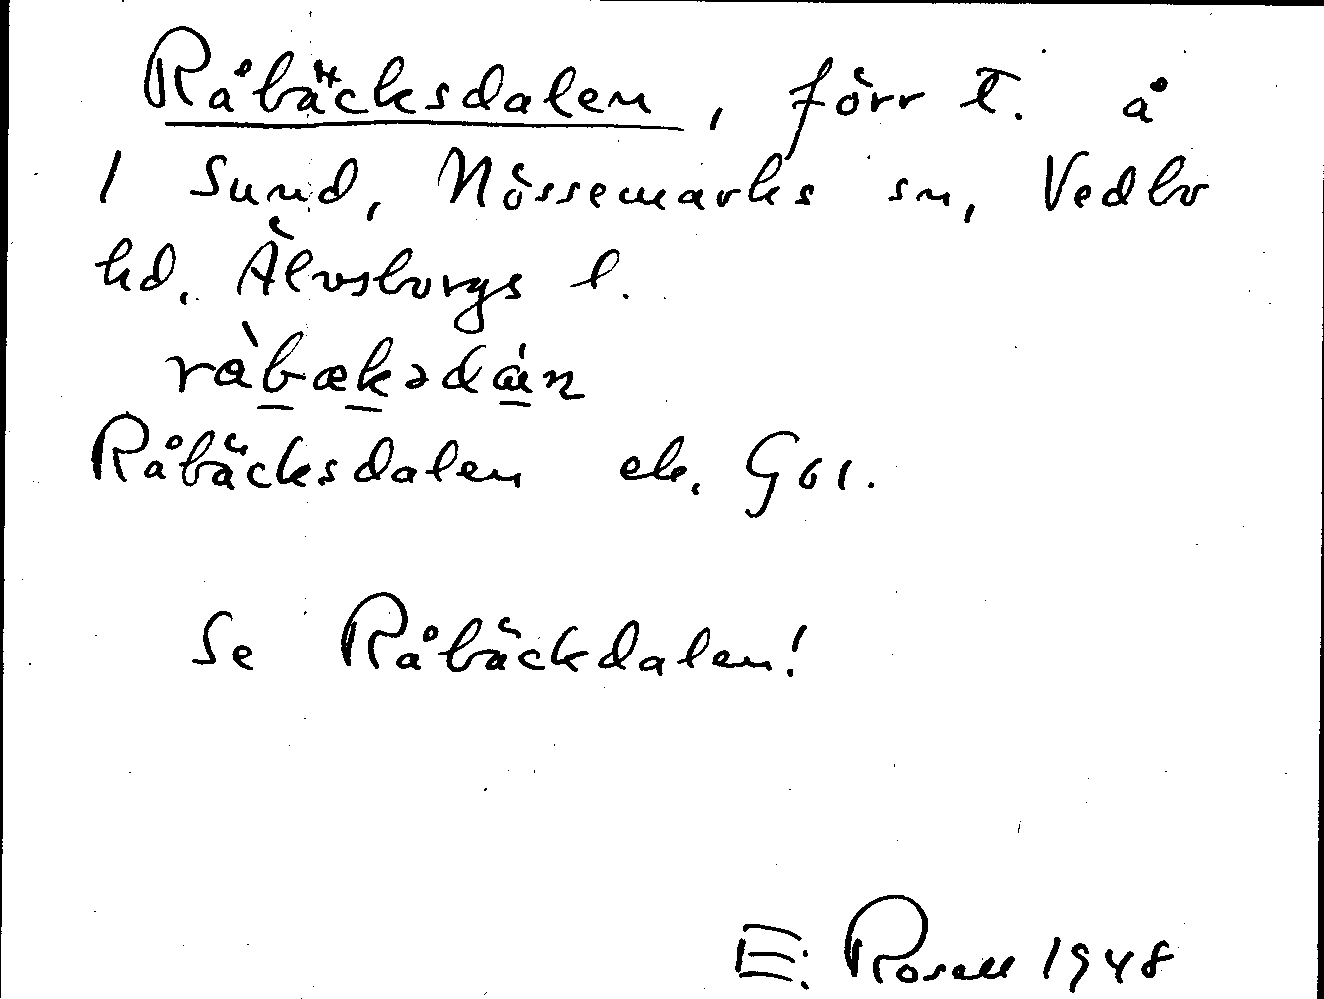 Råbäcksdalen, förr t. å
1 Sund, Nössemarks sn, Vedbo
hd. Älvsborgs l.
rå̀bækədán
Råbäcksdalen ek. G61.
Se Råbäckdalen!
E. Rosell 1948